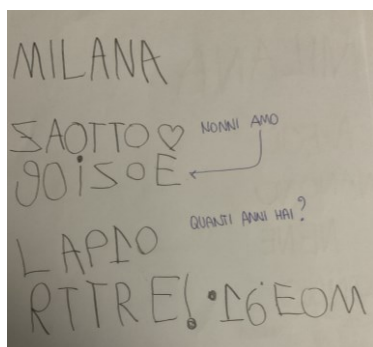 MILANA
SAOTTO♡ NONNI AMO
90iSOE
QUANTI ANNI HAI?
LAP10
RTTRE!.16EOM